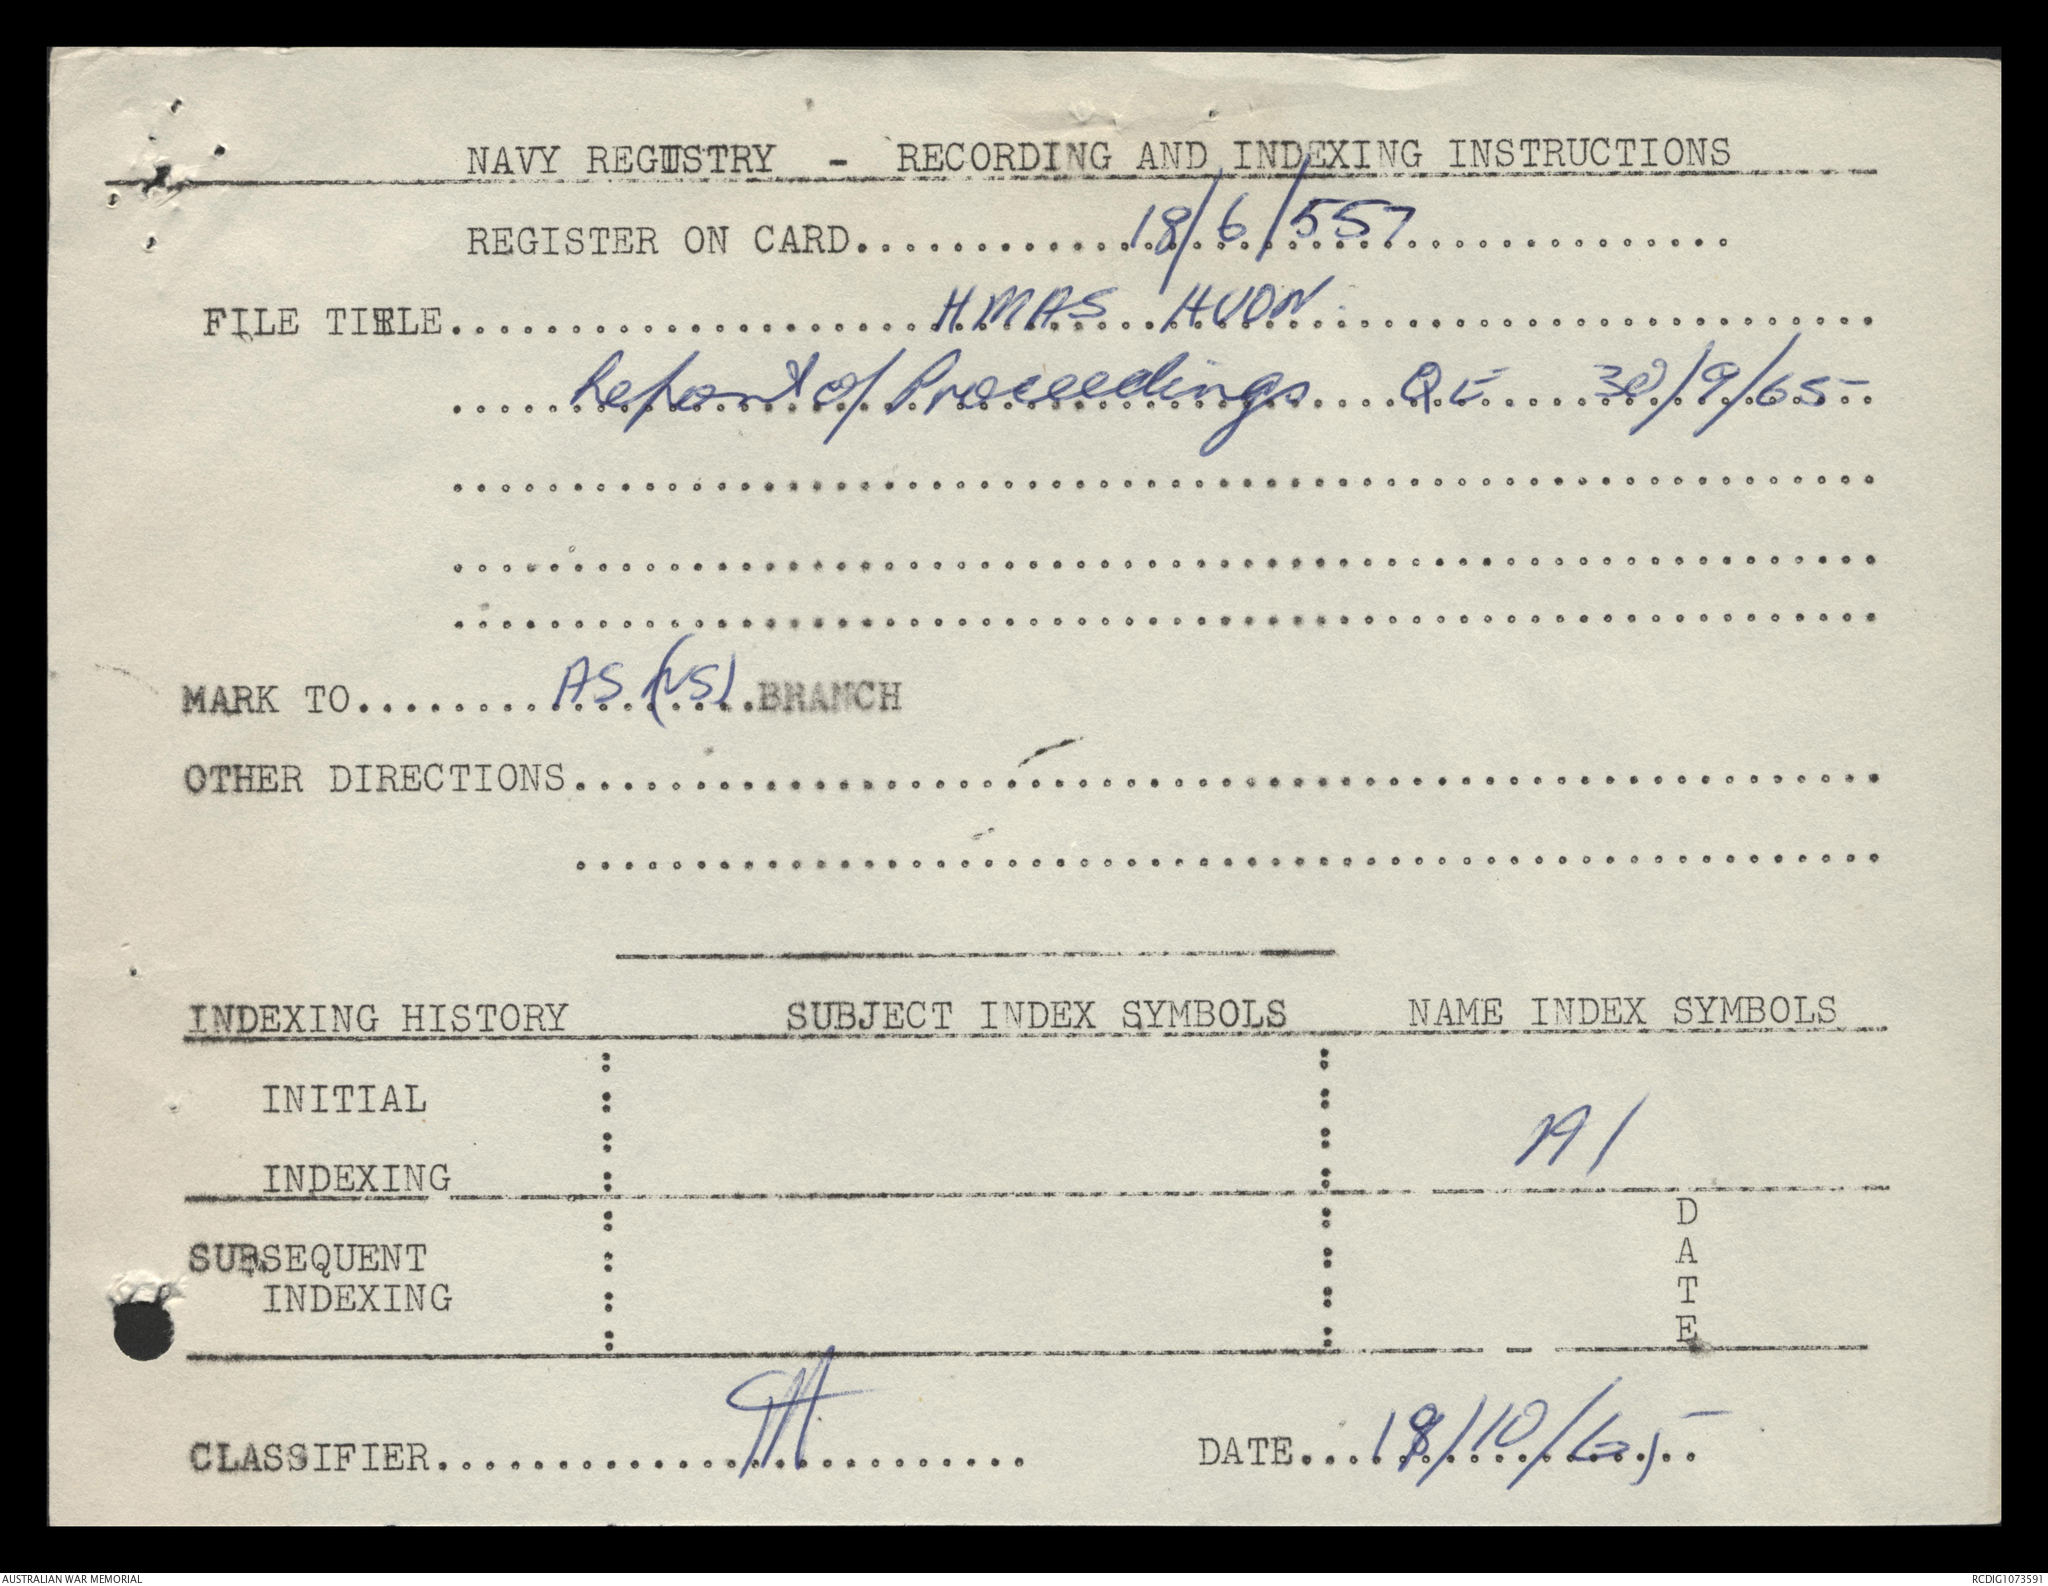 NAVY REGISTRY - RECORDING AND INDEXING INSTRUCTIONS
REGISTER ON CARD 18/6/557
FILE TITLE HMAS HUON
Report of Proceedings QE 30/9/65
MARK TO AS (NS) BRANCH
OTHER DIRECTIONS
INDEXING HISTORY SUBJECT INDEX SYMBOLS NAME INDEX SYMBOLS
INITIAL
INDEXING
SUBSEQUENT
INDEXING
DATE
CLASSIFIER
DATE 18/10/65
AUSTRALIAN WAR MEMORIAL RCDIG1073591